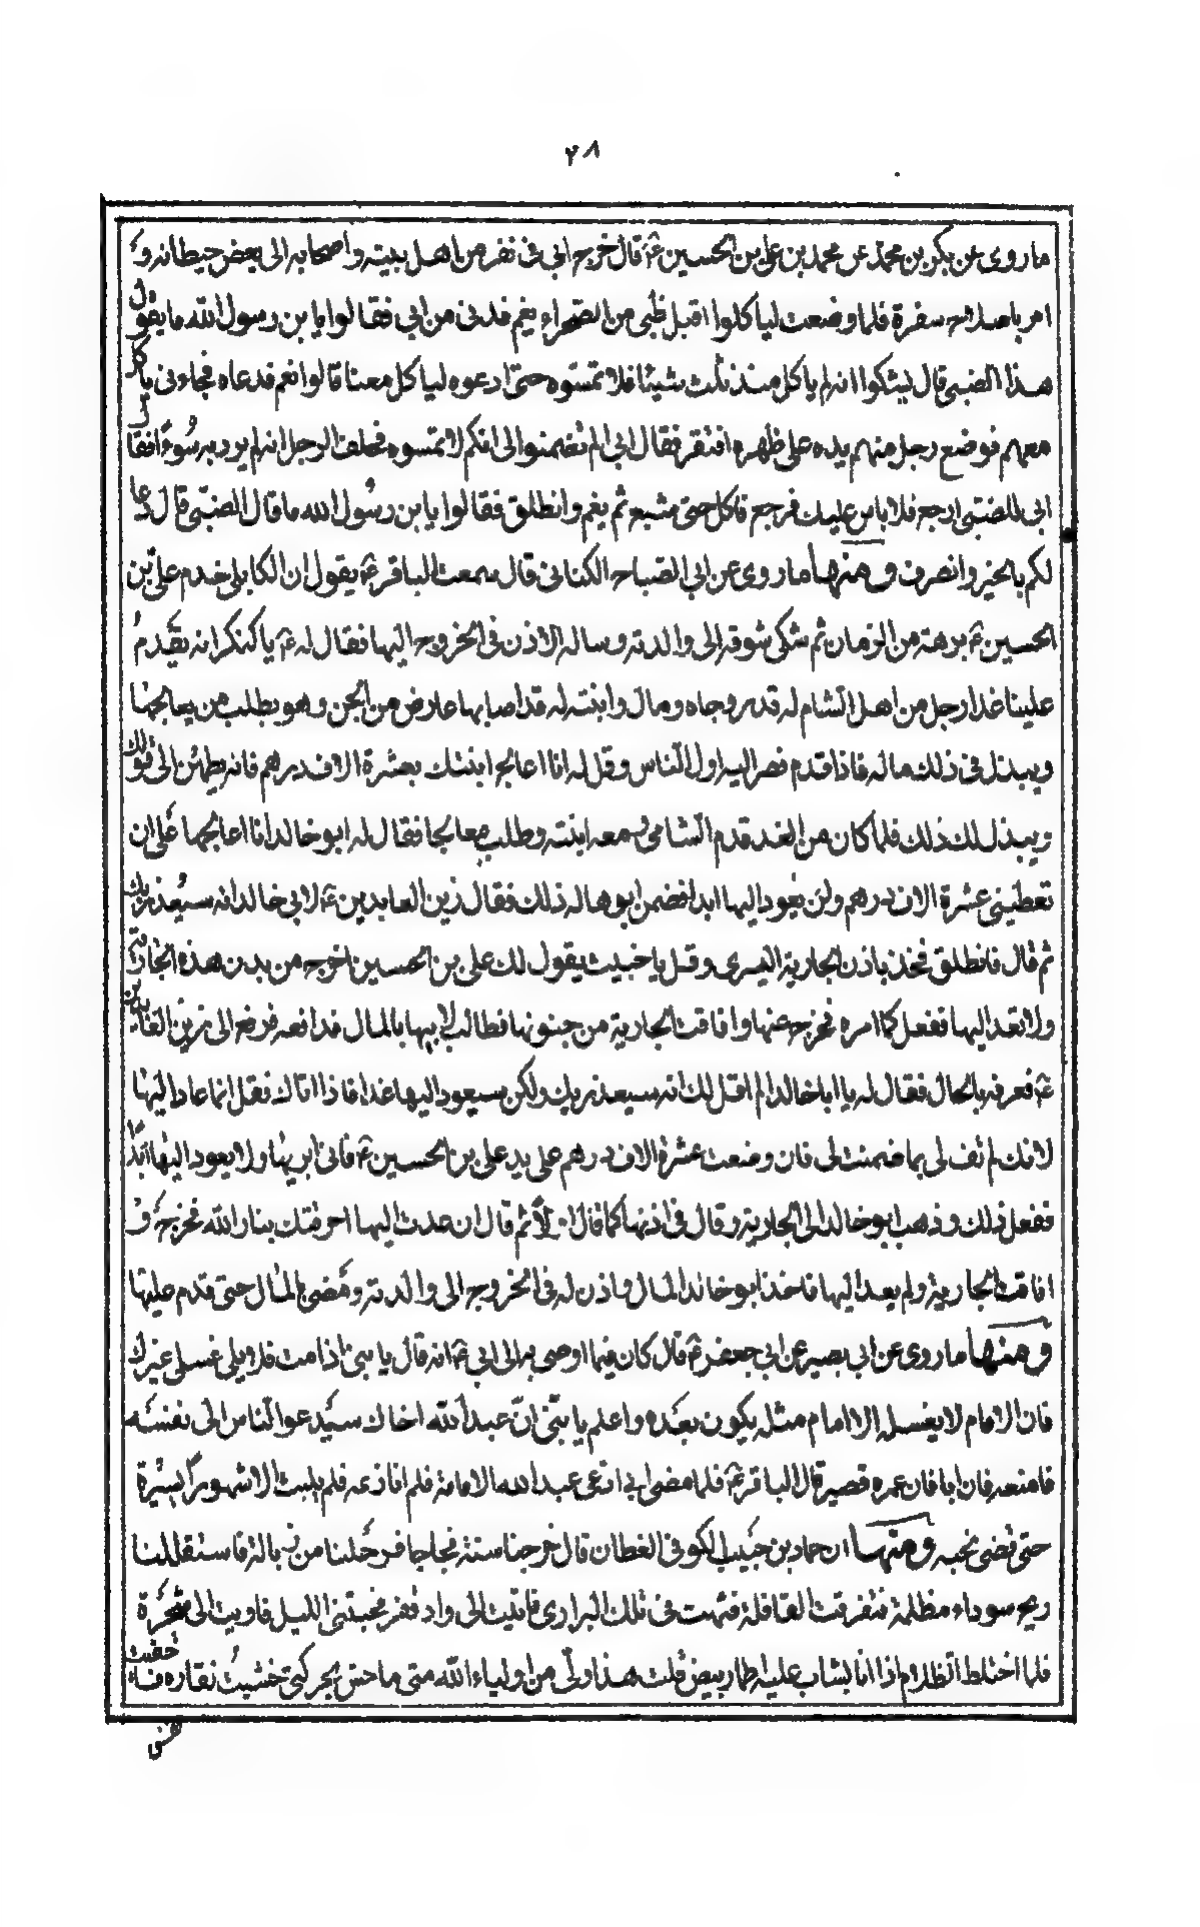 ٢٨
ما روى عن بكر بن محمد عن محمد بن على بن الحسين ع قال خرج ابى فى نفر من اهل بيته واصحابه الى بعض حيطانه و
امر باصلاح سفرة فلما وضعت لياكلوا اقبل ظبى من الصحراء يبغم فدنى من ابى فقالوا يا بن رسول الله ما يقول
هذا الظبى قال يشكوا انه لم ياكل منذ ثلث شيئا فلا تمسوه حتى ادعوه لياكل معنا قالوا نعم فدعاه فجاء فى ياكل
معهم فوضع رجل منهم يده على ظهره فنفر فقال ابى الم تضمنوا لى انكم لا تمسوه فحلف الرجل انه لم يرد به سوءا فقال
ابى للظبى ارجع فلا باس عليك فرجع فاكل حتى شبع ثم بغم وانطلق فقالوا يا بن رسول الله ما قال الظبى قال دعا
لكم بالخير وانصرف ومنها ما روى عن ابى الصباح الكنانى قال سمعت الباقر ع يقول ان الكابلى خدم على بن
الحسين ع برهة من الزمان ثم شكى شوقه الى والدته وساله الاذن فى الخروج اليها فقال له ع يا كنكر انه يقدم
علينا غدا رجل من اهل الشام له قدر وجاه ومال وابنته له قد اصابها عارض من الجن وهو يطلب من يعالجها
ويبذل فى ذلك ماله فاذا قدم فصر اليه اول الناس وقل له انا اعالج ابنتك بعشرة الاف درهم فانه يطمئن الى قولك
ويبذل لك ذلك فلما كان من الغد قدم الشامى ومعه ابنته وطلب معالجا فقال له ابو خالد انا اعالجها على ان
تعطينى عشرة الاف درهم ولن يعود اليها ابدا فضمن ابوها له ذلك فقال زين العابدين ع لابى خالد انه سيغدر بك
ثم قال فانطلق فخذ باذن الجارية اليسرى وقل يا خبيث يقول لك على بن الحسين اخرج من بدن هذه الجارية
ولا تعد اليها ففعل كما امره فخرج عنها وافاقت الجارية من جنونها فطالب لابيها بالمال فدافعه فرجع الى زين العابدين
ع فعرفه بالحال فقال له يا ابا خالد الم اقل لك انه سيغدر بك ولكن سيعود اليها غدا فاذا اتاك فقل انما عاد اليها
لانك لم تف لى بما ضمنت لى فان وضعت عشرة الاف درهم على يد على بن الحسين ع فانى ابريها ولا يعود اليها ابدا
ففعل ذلك وذهب ابو خالد الى الجارية وقال فى اذنها كما قال اولا ثم قال ان عدت اليها احرقتك بنار الله فخرج و
افاقت الجارية ولم يعد اليها فاخذ ابو خالد المال واذن له فى الخروج الى والدته ومضى بالمال حتى قدم عليها
ومنها ما روى عن ابى بصير عن ابى جعفر ع قال كان فيما اوصى به الى ابى ع انه قال يا بنى اذا مت فلا يلى غسلى غيرك
فان الامام لا يغسله الا امام مثله يكون بعده واعلم يا بنى ان عبد الله اخاك سيدعو الناس الى نفسه
فامنعه فان ابا فان عمره قصيرة قال الباقر ع فلما مضى ابى ادعى عبد الله الامامة فلم انازعه فلم يلبث الا شهورا يسيرة
حتى قضى نحبه ومنها ان حماد بن حبيب الكوفى القطان قال خرجنا سنة حجاجا فرحلنا من زبالة فاستقبلنا
ريح سوداء مظلمة فتفرقت القافلة فتهت فى تلك البرارى فانتهيت الى واد قفر فجننى الليل فاويت الى شجرة
فلما اختلط الظلام اذا انا بشاب عليه اطمار بيض قلت هذا ولى من اولياء الله متى ما احس بحركتى خشيت نفاره فاخفيت